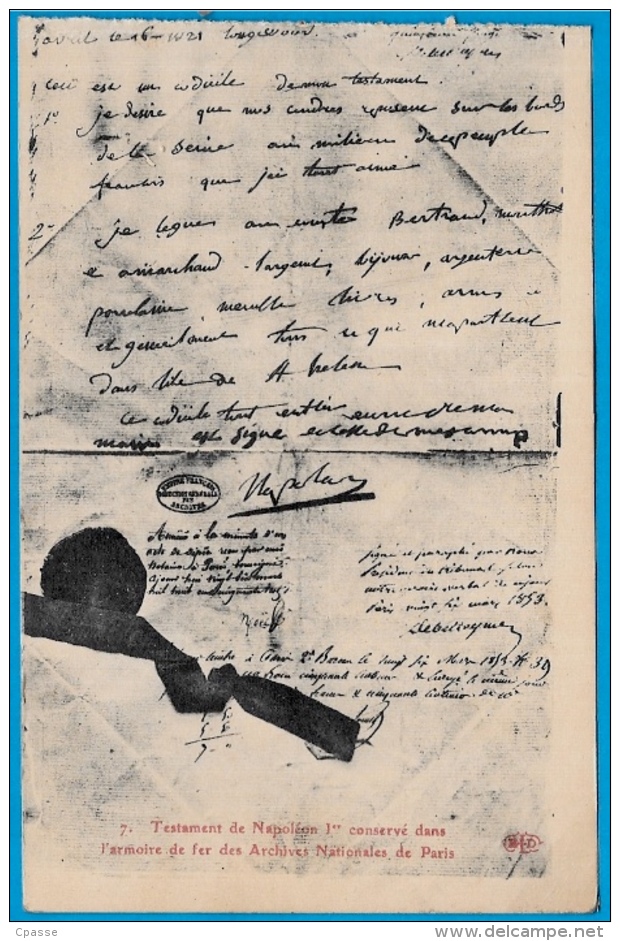 avril le 16 1821 longwood
ceci est un codicile de mon testament.
1° je desire que mes cendres reposent sur les bords
de la Seine au milieu de ce peuple
francais que j'ai tant aimé
2° je legue au comte Bertrand, montholon
et a marchand l'argent, bijoux, argenterie
porcelaine, meuble livres, armes
et generalement tous ce qui m'apartient
dans l'ile de St helene
ce codicile tout entier ecrit de ma
main est signé et de mes armes
Napoleon
EMPIRE FRANÇAIS
DIRECTION GENERALE
DES
ARCHIVES
Annexé à la minute d'un
acte de dépôt reçu par
Notaire à Paris soussigné
aujourd'hui vingt six mars
mil huit cent cinquante trois
signé et paraphé par nous
Président du tribunal
notre procès verbal de
Paris vingt six mars 1853.
Debelleyme
à Paris 2e Bureau le vingt six Mars 1853
cinquante
cinquante centimes
7. Testament de Napoléon Ier conservé dans
l'armoire de fer des Archives Nationales de Paris
ELD
Cpasse
www.delcampe.net